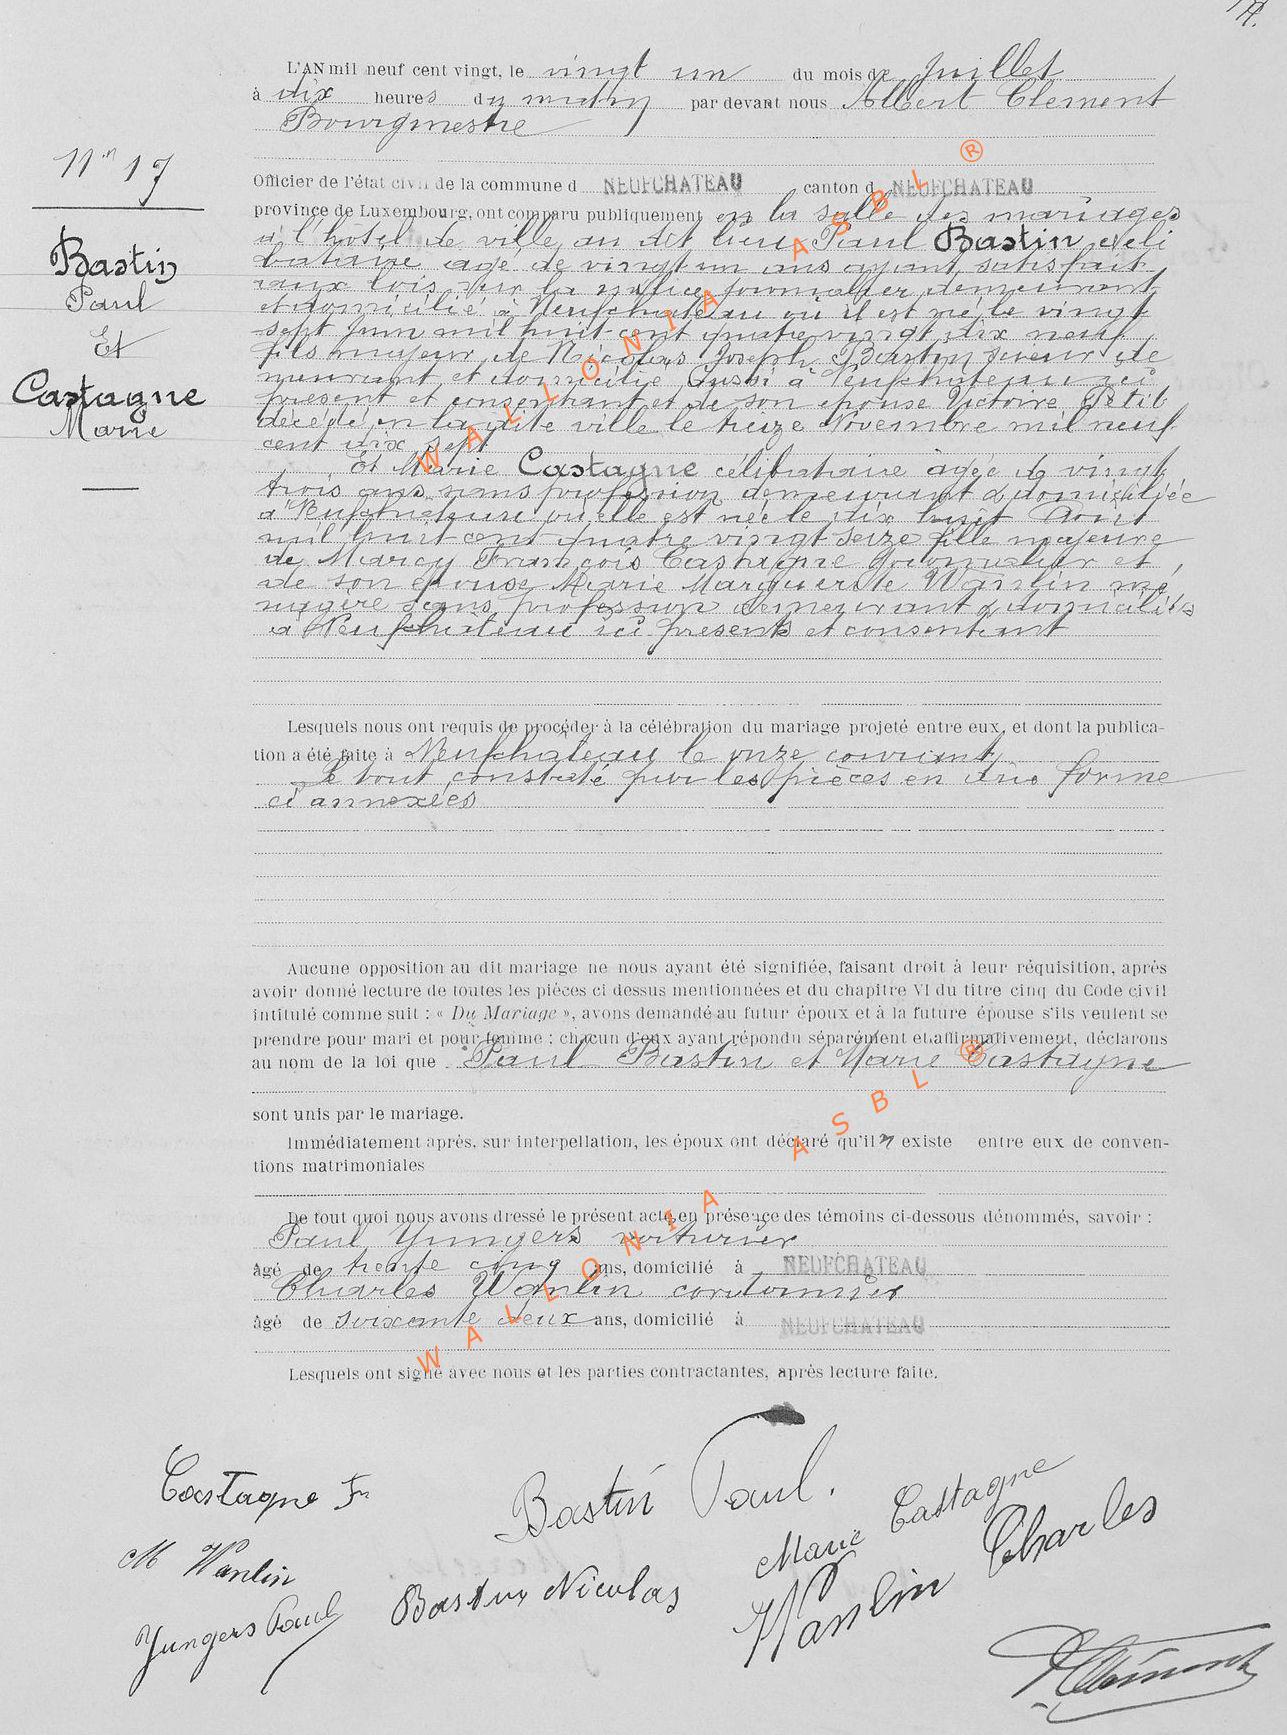 L'AN mil neuf cent vingt, le vingt un du mois de Juillet
à dix heures du matin par devant nous Albert Clement
Bourgmestre
N° 17
Officier de l'état civil de la commune d NEUFCHATEAU canton d NEUFCHATEAU
province de Luxembourg, ont comparu publiquement en la salle des mariages
à l'hôtel de ville au dit lieu Paul Bastin céli
bataire agé de vingt un ans ayant satisfait
aux lois sur la milice journalier demeurant
et domicilié à Neufchateau où il est né le vingt
sept Juin mil huit cent quatre vingt dix neuf
fils majeur de Nicolas Joseph Bastin de
meurant et domicilié aussi à Neufchateau ici
présent et consentant et de son épouse Victoire Petit
décédée en la dite ville le treize Novembre mil neuf
cent dix sept
Et Marie Castagne célibataire âgée de vingt
trois ans sans profession demeurant & domiciliée
à Neufchateau où elle est née le dix huit Aout
mil huit cent quatre vingt seize fille majeure
de François Castagne journalier et
de son épouse Marie Marguerite Wanlin mé
nagère sans profession demeurant & domiciliés
à Neufchateau ici présents et consentant
Bastin
Paul
Et
Castagne
Marie
Lesquels nous ont requis de procéder à la célébration du mariage projeté entre eux, et dont la publica-
tion a été faite à Neufchateau le onze courant
Le tout constaté par les pièces en due forme
ci annexées
Aucune opposition au dit mariage ne nous ayant été signifiée, faisant droit à leur réquisition, après
avoir donné lecture de toutes les pièces ci dessus mentionnées et du chapitre VI du titre cinq du Code civil
intitulé comme suit : « Du Mariage », avons demandé au futur époux et à la future épouse s'ils veulent se
prendre pour mari et pour femme : chacun d'eux ayant répondu séparément et affirmativement, déclarons
au nom de la loi que Paul Bastin et Marie Castagne
sont unis par le mariage.
Immédiatement après, sur interpellation, les époux ont déclaré qu'il n existe entre eux de conven-
tions matrimoniales
De tout quoi nous avons dressé le présent acte en présence des témoins ci-dessous dénommés, savoir :
Paul Yungers voiturier
âgé de trente cinq ans, domicilié à NEUFCHATEAU
Charles Wanlin cordonnier
âgé de soixante deux ans, domicilié à NEUFCHATEAU
Lesquels ont signé avec nous et les parties contractantes, après lecture faite.
Castagne Fr
Bastin Paul.
Marie Castagne
M Wanlin
Bastin Nicolas
Wanlin Charles
Yungers Paul
AClément
WALLONIA ASBL ®
WALLONIA ASBL ®